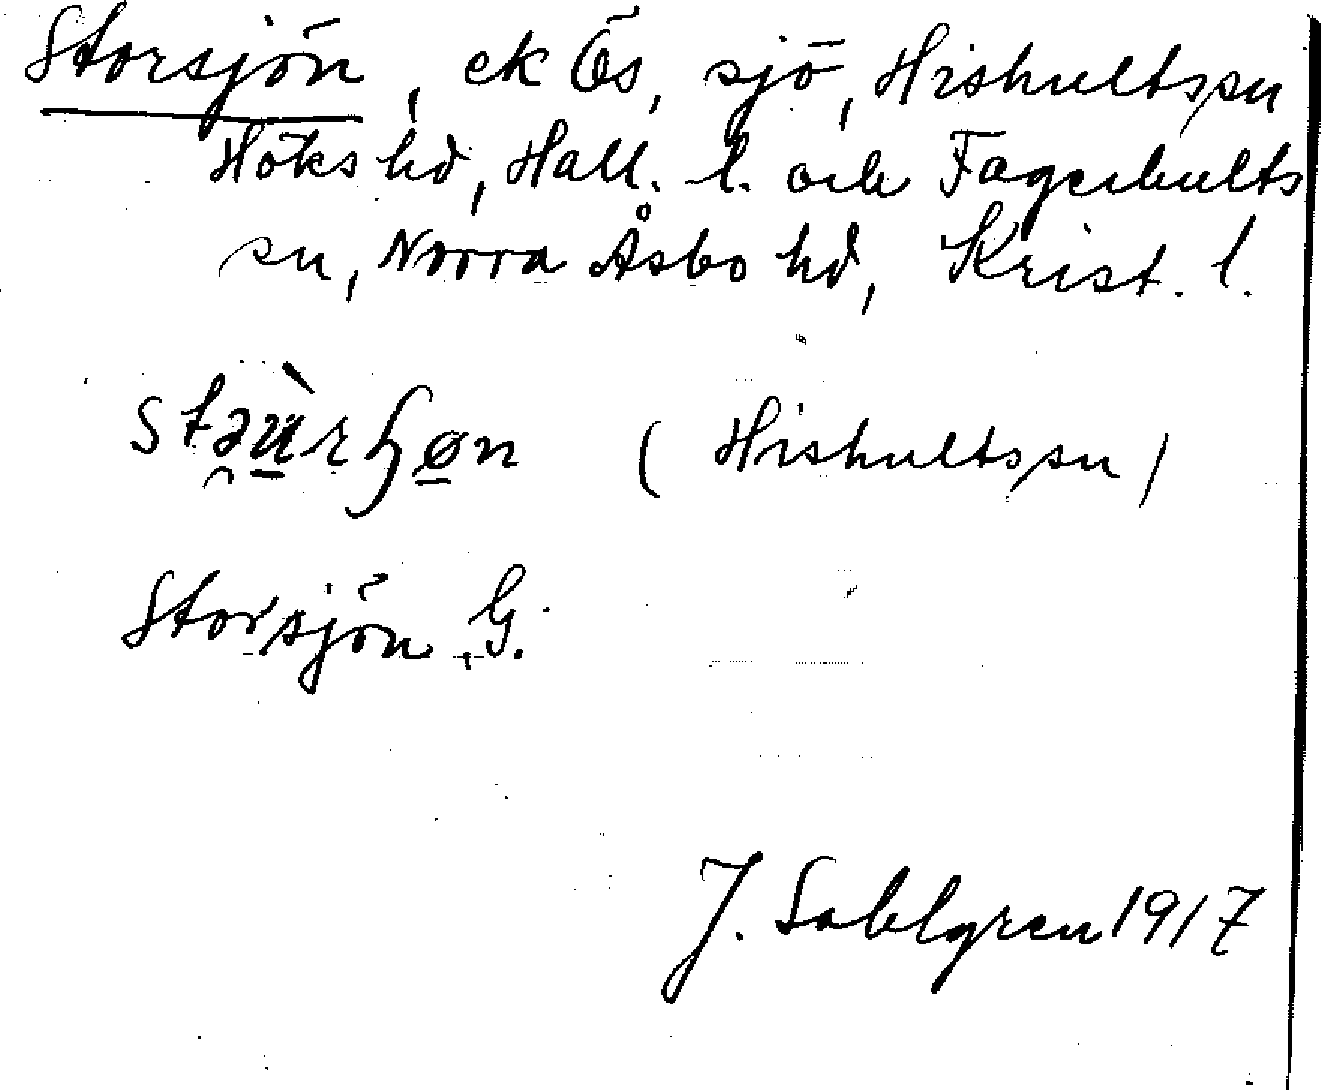 Storsjön, ek Ös, sjö, Hishultssn
Höks hd, Hall. l. och Fagerhults
sn, Norra Åsbo hd, Krist. l.
(Hishultssn)
Storsjön G.
J. Sahlgren 1917